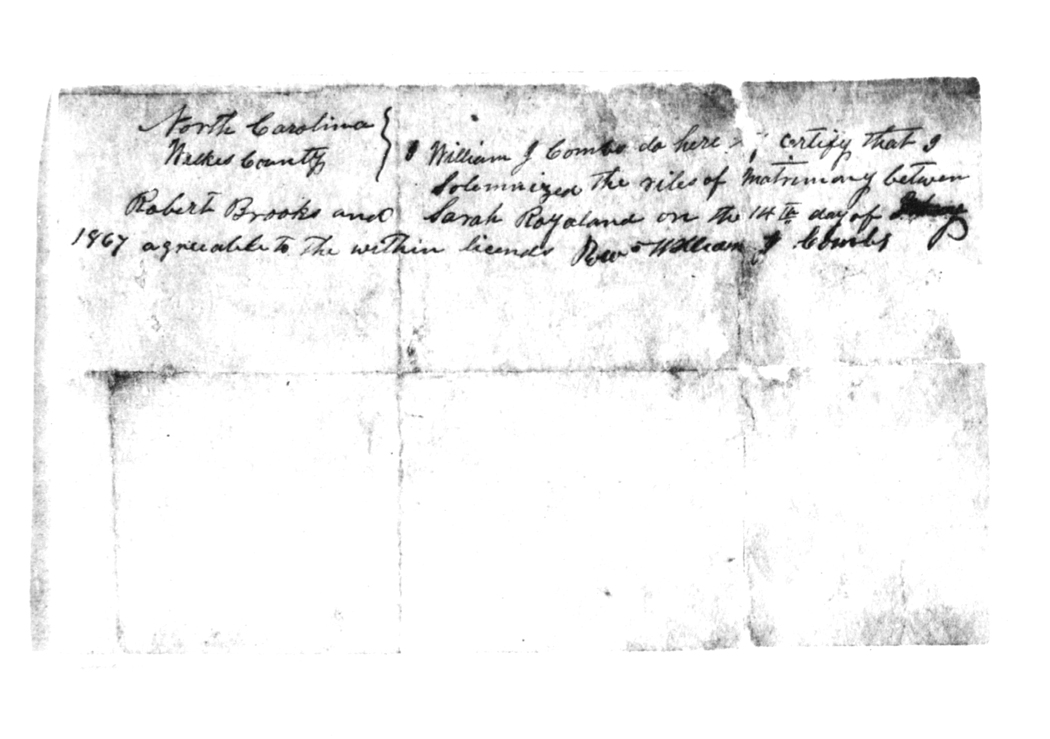 North Carolina
Wilkes County } I William J Combs do here by certify that I
Solemnized the rites of Matrimony between
Robert Brooks and Sarah Royaland on the 14th day of
1867 agreeable to the within licends Rev William J Combs